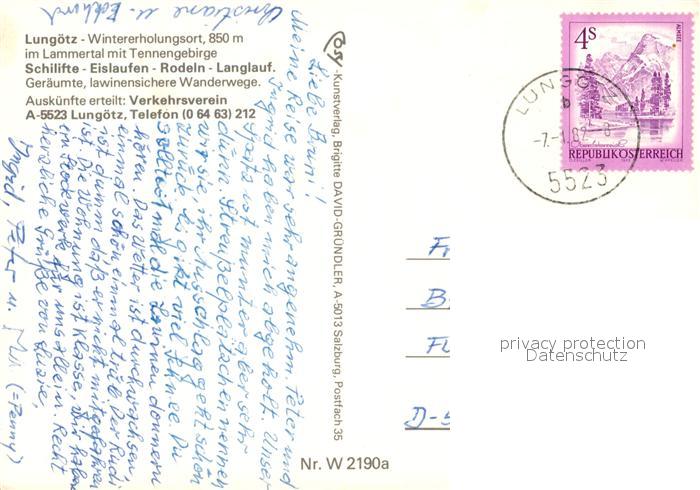 Lungötz - Wintererholungsort, 850 m
im Lammertal mit Tennengebirge
Schilifte - Eislaufen - Rodeln - Langlauf.
Geräumte, lawinensichere Wanderwege.
Auskünfte erteilt: Verkehrsverein
A-5523 Lungötz, Telefon (0 64 63) 212
Liebe
meine Reise war sehr angenehm. Peter und
Ingrid haben mich abgeholt. Unser
ist munter aber sehr
dünn.
wir sie, ihr Ausschlag geht schön
zurück. Es gibt viel Schnee. Du
solltest mal die Lawinen donnern
hören. Das Wetter ist durchwachsen,
einmal schön einmal trüb. Der Rudi
ist dumm daß er nicht mitgefahren
ist. Die Wohnung ist Klasse, wir haben
ein Stockwerk für uns allein. Recht
herzliche Grüße von
Ingrid, Peter u. (= Penny)
Christiane u. Eckhard
Kunstverlag, Brigitte DAVID-GRÜNDLER, A-5013 Salzburg, Postfach 35
Nr. W 2190a
4S
ALMSEE
REPUBLIK ÖSTERREICH
LUNGÖTZ
b
5523
Fr
B
Fl
D-5
privacy protection
Datenschutz